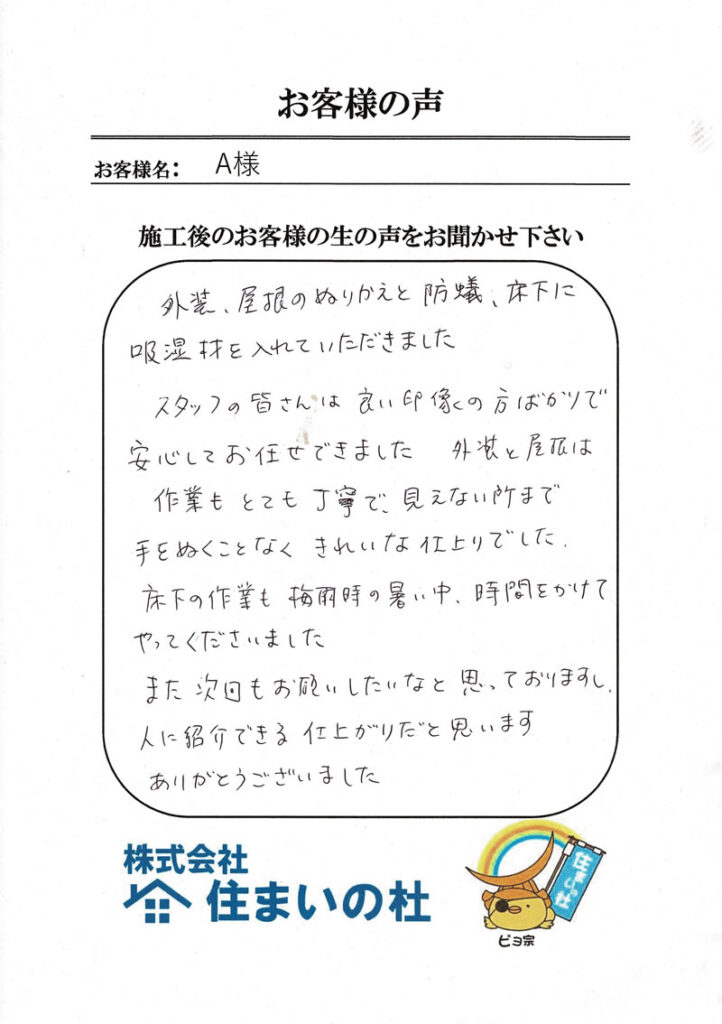 お客様の声
お客様名： A様
施工後のお客様の生の声をお聞かせ下さい
外装、屋根のぬりかえと防蟻、床下に
吸湿材を入れていただきました
スタッフの皆さんは良い印像の方ばかりで
安心してお任せできました 外装と屋根は
作業もとても丁寧で、見えない所まで
手をぬくことなくきれいな仕上りでした.
床下の作業も梅雨時の暑い中、時間をかけて
やってくださいました
また次回もお願いしたいなと思っておりますし、
人に紹介できる仕上がりだと思います
ありがとうございました
株式会社
住まいの杜
住まいの杜
ピヨ宗